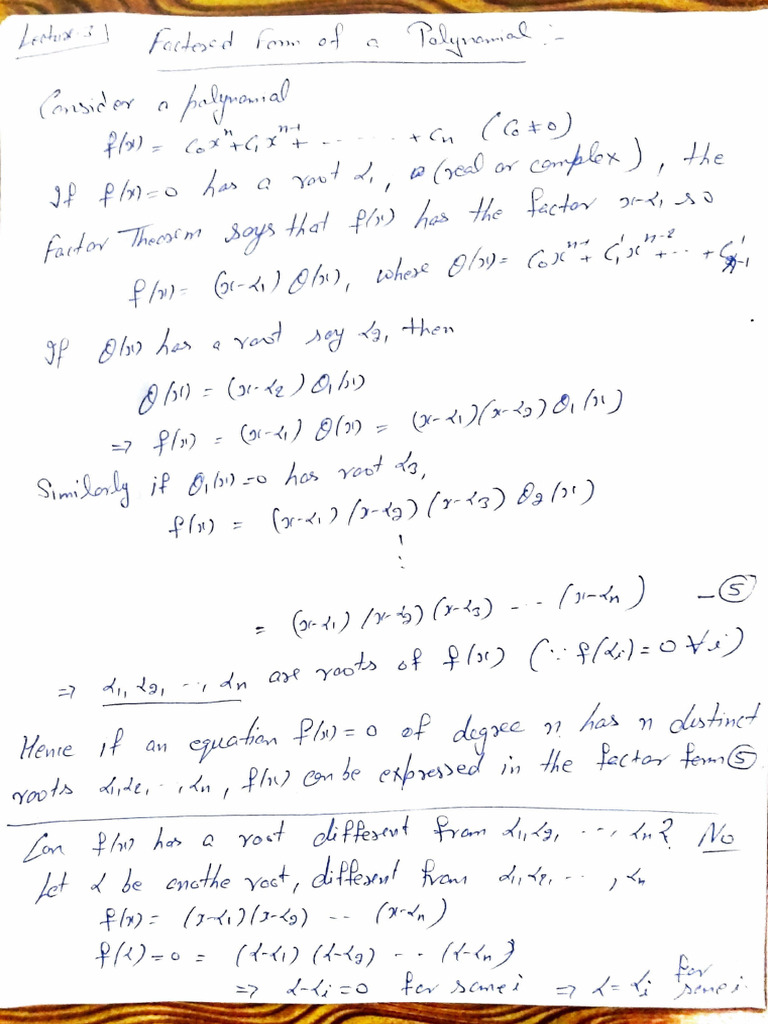 Lecture-3)
Factored Form of a Polynomial :-
Consider a polynomial
f(x) = C₀xⁿ + C₁xⁿ⁻¹ + ....... + Cₙ (C₀ ≠ 0)
If f(x)=0 has a root α₁, (real or complex), the
Factor Theorem says that f(x) has the factor x-α₁ so
f(x) = (x-α₁) Q(x), where Q(x) = C₀xⁿ⁻¹ + C₁'xⁿ⁻² + ... + C'ₙ₋₁
If Q(x) has a root say α₂, then
Q(x) = (x-α₂) Q₁(x)
⇒ f(x) = (x-α₁) Q(x) = (x-α₁)(x-α₂) Q₁(x)
Similarly if Q₁(x)=0 has root α₃,
f(x) = (x-α₁)(x-α₂)(x-α₃) Q₂(x)
⋮
= (x-α₁)(x-α₂)(x-α₃) --- (x-αₙ) —⑤
⇒ α₁, α₂, ..., αₙ are roots of f(x) (∵ f(αᵢ)=0 ∀ i)
Hence if an equation f(x)=0 of degree n has n distinct
roots α₁,α₂, .., αₙ, f(x) can be expressed in the factor form ⑤
Can f(x) has a root different from α₁,α₂, ..., αₙ? No
Let α be anothe root, different from α₁,α₂, ..., αₙ
f(x) = (x-α₁)(x-α₂) -- (x-αₙ)
f(α)=0 = (α-α₁)(α-α₂) -- (α-αₙ)
⇒ α-αᵢ=0 for some i ⇒ α=αᵢ for some i.